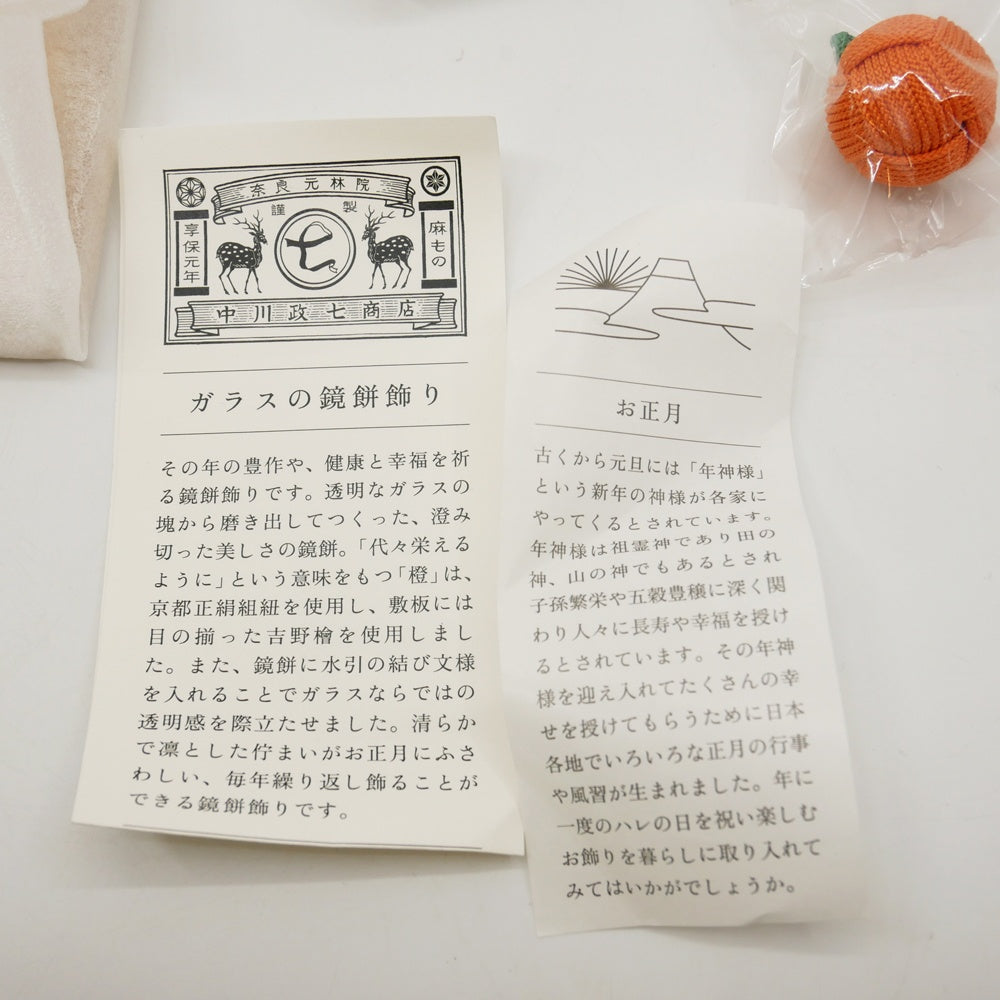 奈良元林院
謹製
享保元年
七
麻もの
中川政七商店
ガラスの鏡餅飾り
その年の豊作や、健康と幸福を祈
る鏡餅飾りです。透明なガラスの
塊から磨き出してつくった、澄み
切った美しさの鏡餅。「代々栄える
ように」という意味をもつ「橙」は、
京都正絹組紐を使用し、敷板には
目の揃った吉野檜を使用しまし
た。また、鏡餅に水引の結び文様
を入れることでガラスならではの
透明感を際立たせました。清らか
で凛とした佇まいがお正月にふさ
わしい、毎年繰り返し飾ることが
できる鏡餅飾りです。
お正月
古くから元旦には「年神様」
という新年の神様が各家に
やってくるとされています。
年神様は祖霊神であり田の
神、山の神でもあるとされ
子孫繁栄や五穀豊穣に深く関
わり人々に長寿や幸福を授け
るとされています。その年神
様を迎え入れてたくさんの幸
せを授けてもらうために日本
各地でいろいろな正月の行事
や風習が生まれました。年に
一度のハレの日を祝い楽しむ
お飾りを暮らしに取り入れて
みてはいかがでしょうか。